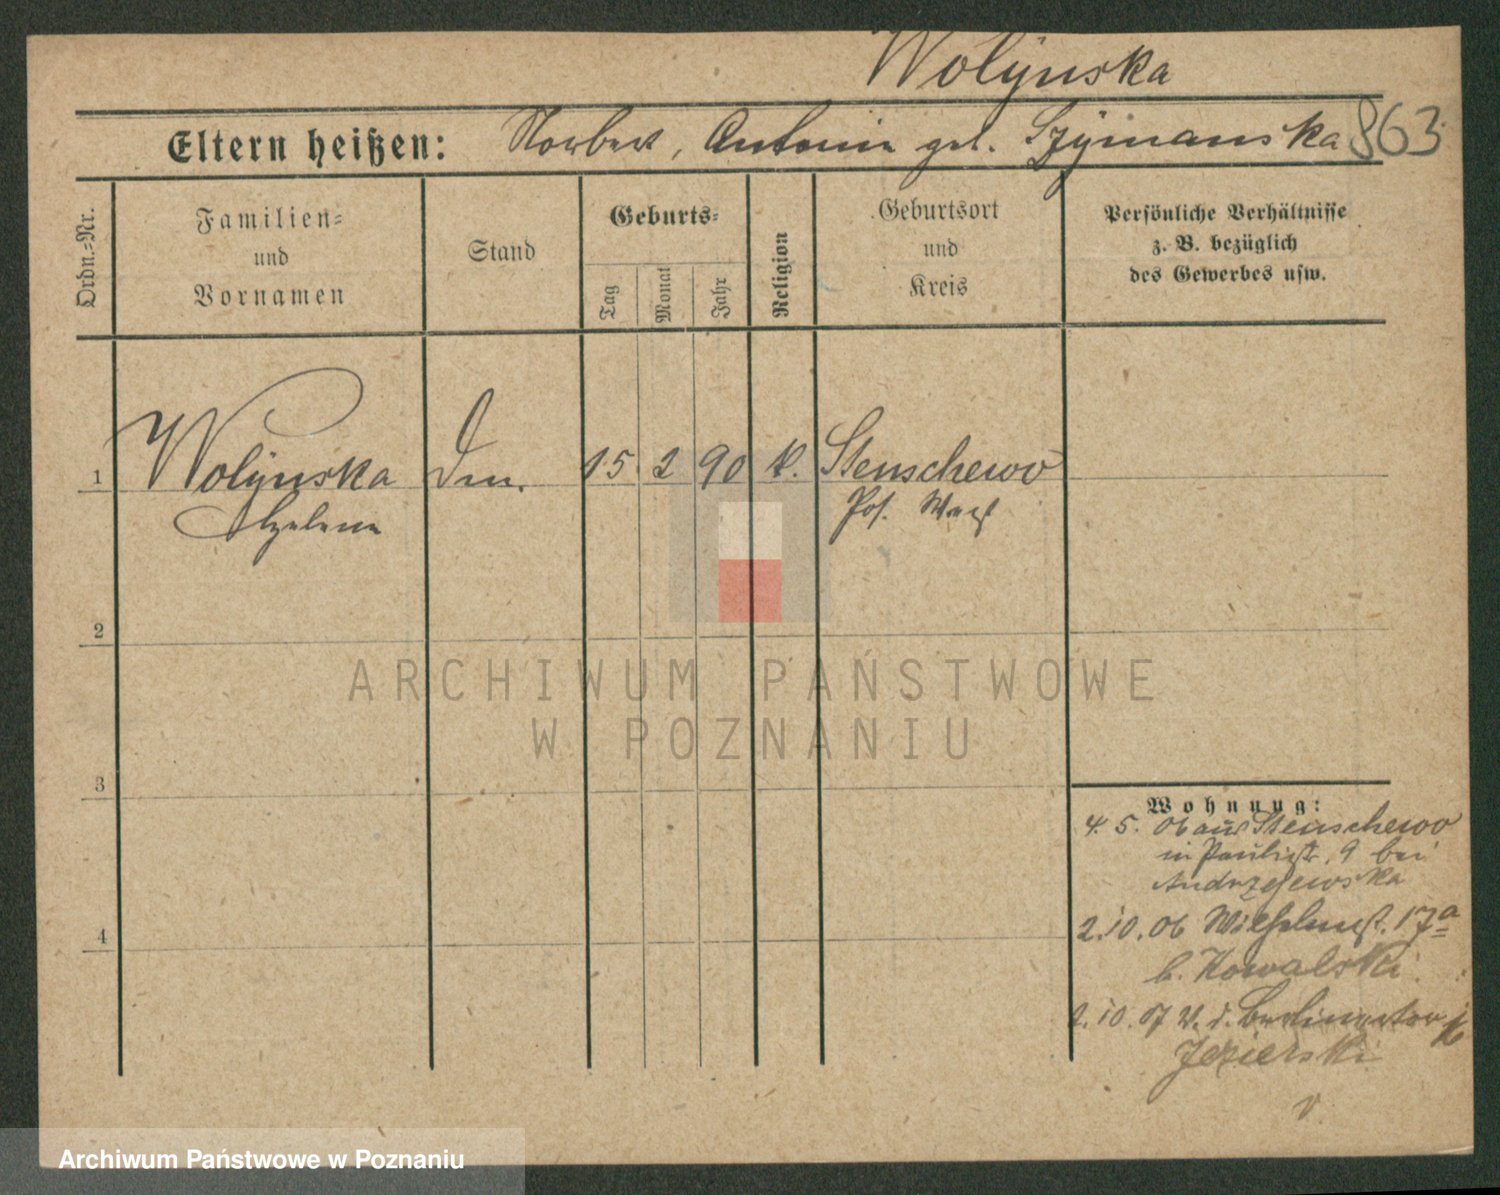 Wolynska
Eltern heißen: Norbert, Antonie geb. Szymanska 863
Ordn.-Nr.
Familien-
und
Vornamen
Stand
Geburts-
Tag
Monat
Jahr
Religion
Geburtsort
und
Kreis
Persönliche Verhältnisse
z. B. bezüglich
des Gewerbes usw.
1 Wolynska 15 2 90 k. Stenschewo
Helene Pos. West
2
3
4
Wohnung:
4. 5. 06 aus Stenschewo
in Paulistr. 9 bei
Andrzejewska
2. 10. 06 Wilhelmst. 17a
b. Kowalski
2. 10. 07 V. d. Berlinertor
Jezierski
ARCHIWUM PAŃSTWOWE
W POZNANIU
Archiwum Państwowe w Poznaniu